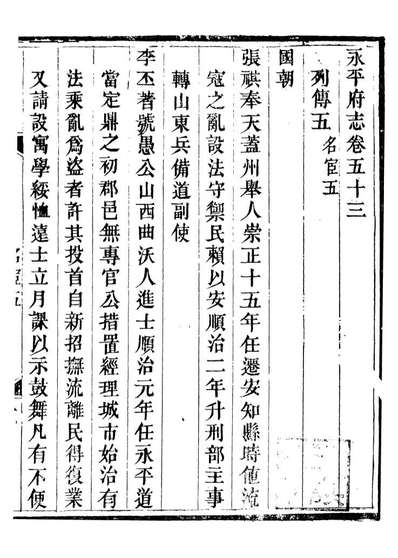 永平府志卷五十三
列傳五 名宦五
國朝
張祺奉天蓋州舉人崇正十五年任遷安知縣時值流
寇之亂設法守禦民賴以安順治二年升刑部主事
轉山東兵備道副使
李丕著號愚公山西曲沃人進士順治元年任永平道
當定鼎之初郡邑無專官公措置經理城市始治有
法乘亂爲盜者許其投首自新招撫流離民得復業
又請設寓學綏恤遠士立月課以示鼓舞凡有不便